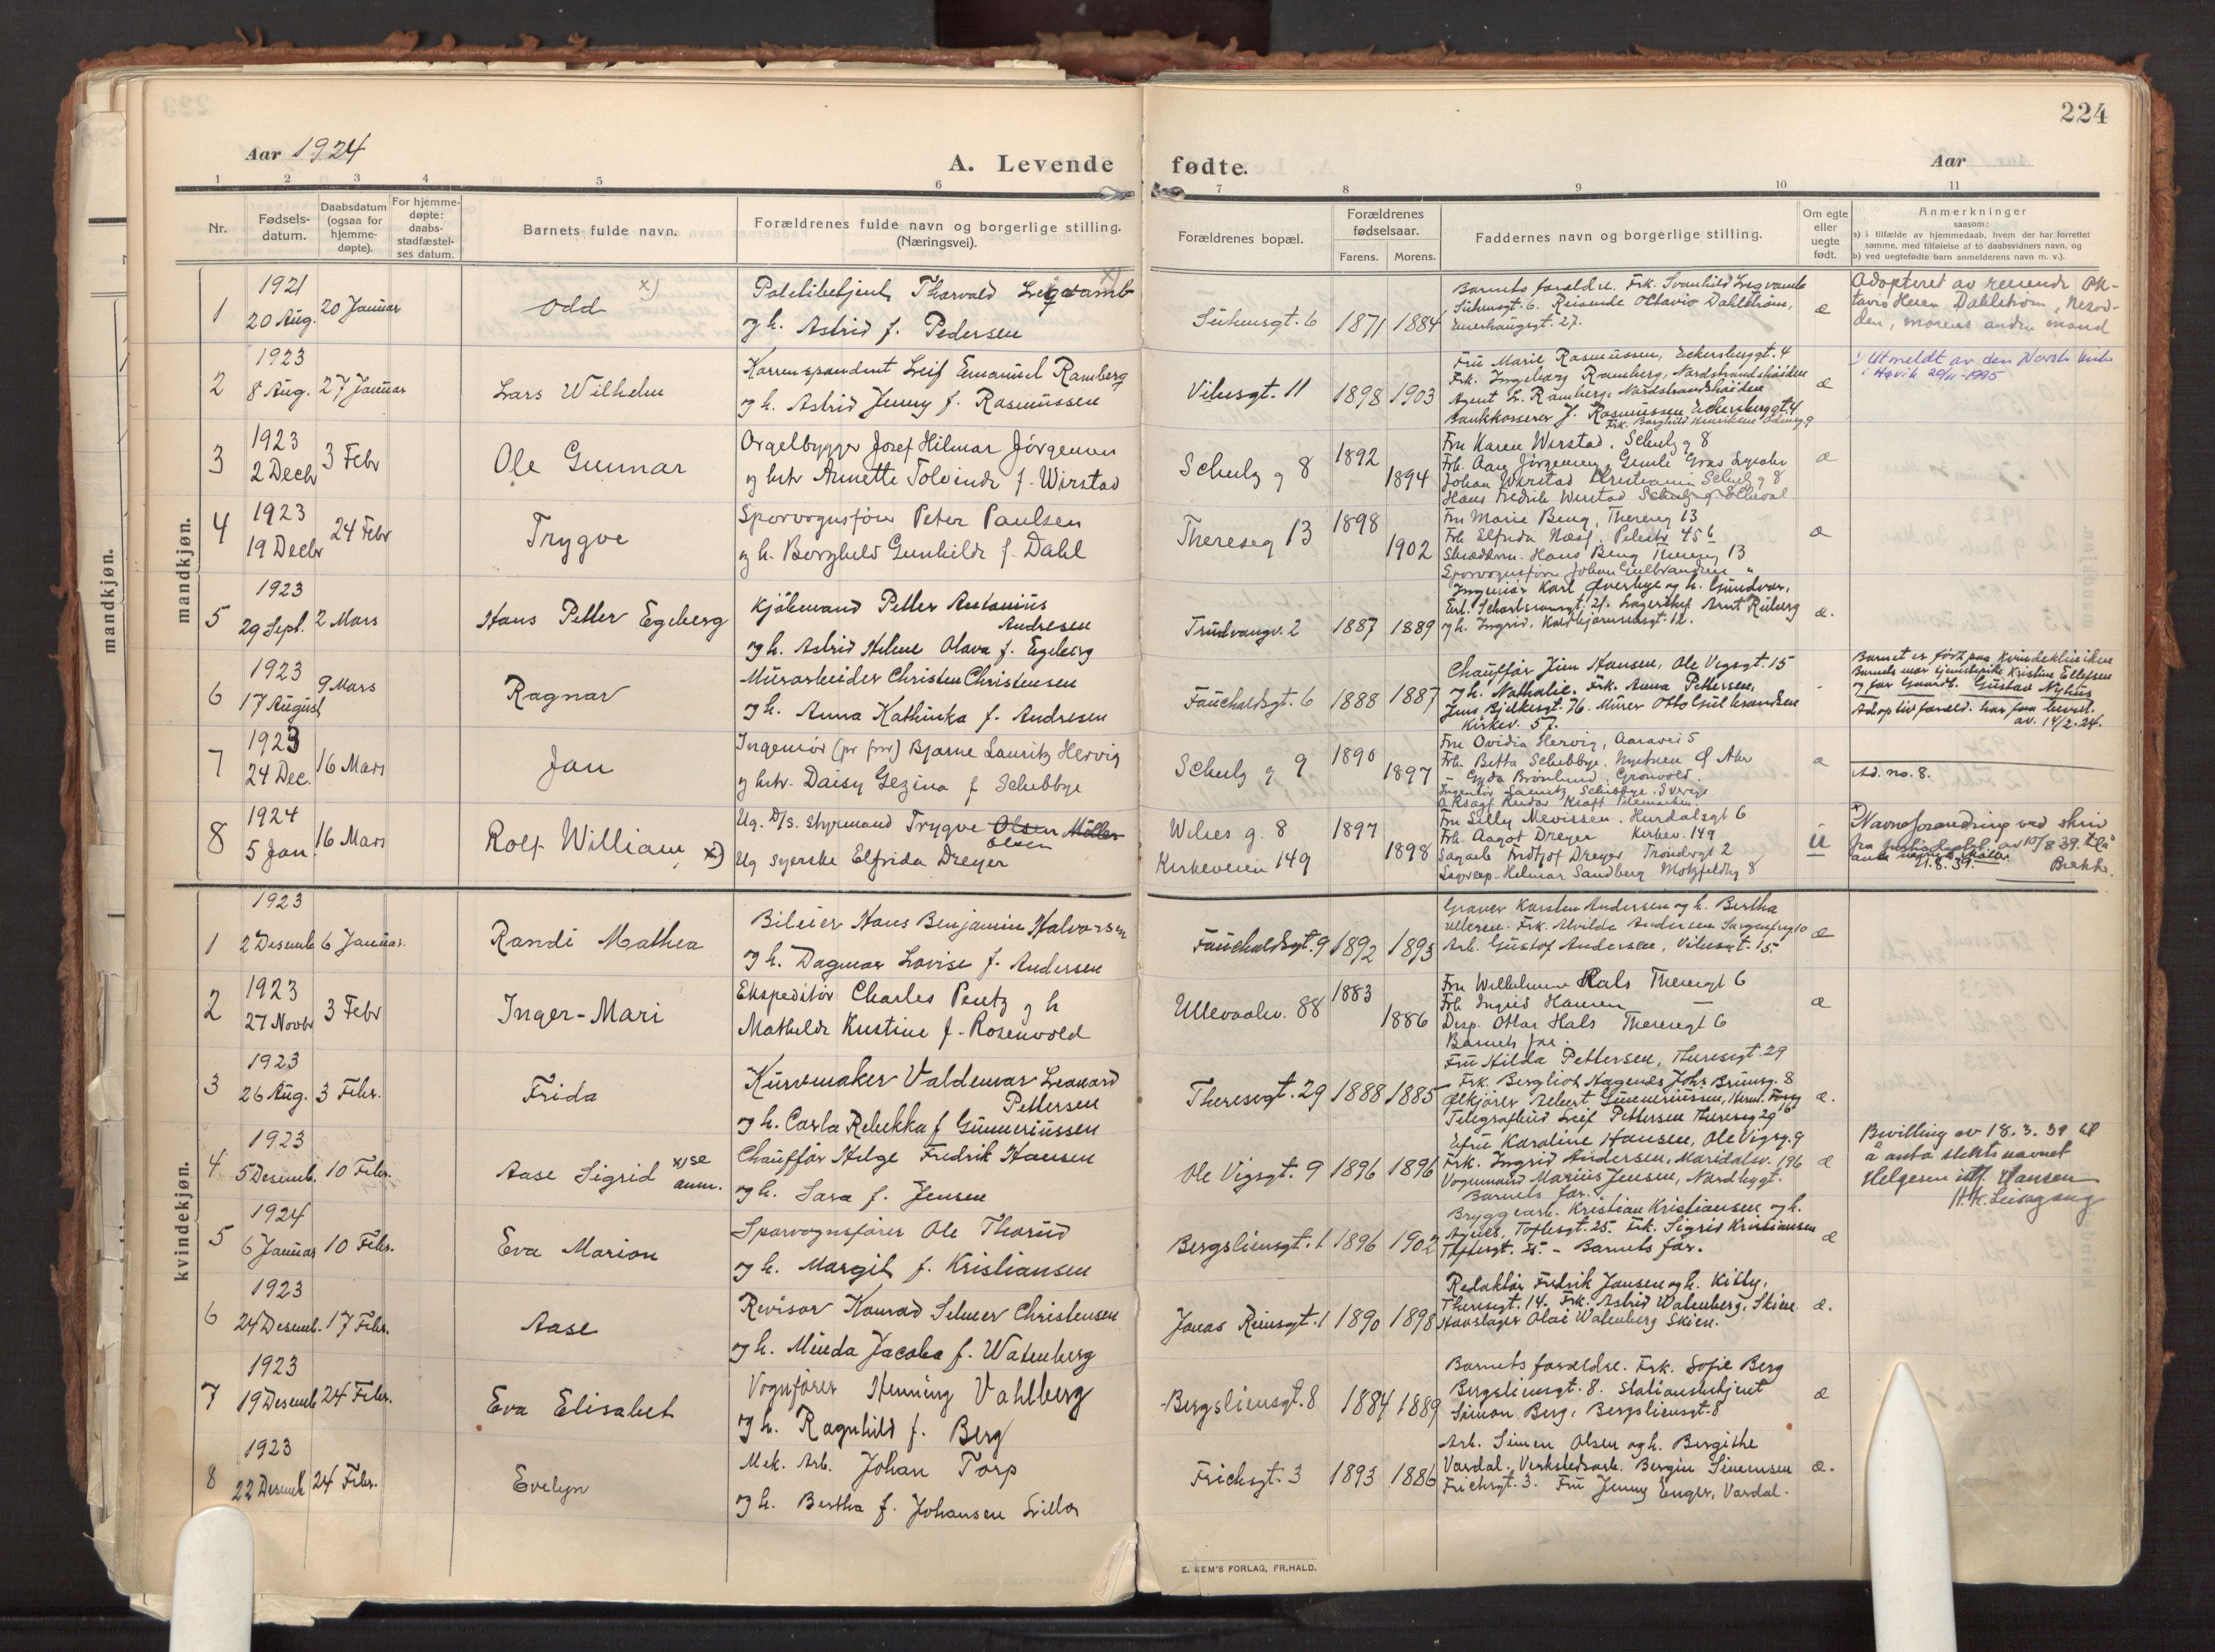 224
Aar 1924
A. Levende fødte.
Aar
1 2 3 4 5 6 7 8 9 10 11
Nr.
Fødselsdatum.
Daabsdatum (ogsaa for hjemmedøpte).
For hjemmedøpte: daabsstadfæstelses datum.
Barnets fulde navn.
Forældrenes fulde navn og borgerlige stilling.
(Næringsvei).
Forældrenes bopæl.
Forældrenes fødselsaar.
Farens. Morens.
Faddernes navn og borgerlige stilling.
Om egte eller uegte født.
Anmerkninger
saasom:
a) i tilfælde av hjemmedaab, hvem der har forrettet
samme, med tilføielse af to daabsvidners navn, og
b) ved uegtefødte barn anmelderens navn m. v.).
mandkjøn.
mandkjøn.
1 1921 20 Aug. 20 Januar
Odd x)
Politibetjent Thorvald
og h. Astrid f. Pedersen
Suhmsgt. 6 1871 1884
Barnets foreldre. Frk. Svanhild
Suhmsgt. 6. Reisende Oktavio Dahlstrøm,
Enerhaugsgt. 27.
æ
Adopteret av reisende Ok-
tavio Dahlstrøm, Nesod-
den, morens andre mand
2 1923 8 Aug. 27 Januar
Lars Wilhelm
Korrespondent Leif Emanuel Ramberg
og h. Astrid Jenny f. Rasmussen
Vibesgt. 11 1898 1903
Fru Marie Rasmussen, Eckersbergt. 4
Frk. Ingeborg Ramberg, Nordstrandshøiden
Agent L. Ramberg, Nordstrandshøiden
Bankkasserer J. Rasmussen Eckersbergt. 4
æ
Utmeldt av den Norske kirke
i Høvik 20/11-1995
3 1923 2 Decbr 3 Febr
Ole Gunnar
Orgelbygger Josef Hilmar Jörgensen
og hstr Annette Tolvine f. Wirstad
Schulz g 8 1892 1894
Fru Karen Werstad. Schulz g 8
Johan Werstad Kristiania Schulz g 8
Hans Fredrik Werstad
æ
4 1923 19 Decbr 24 Febr
Trygve
Sporvognsfører Peter Paulsen
og h. Borghild Gunhilde f. Dahl
Thereseg 13 1898 1902
Fru Marie Beng, Thereseg 13
Frk Elfrida Næss, Pilestr 45 b
Hans Beng Thereseg 13
Sporvognsfører Johan Gulbrandsen "
æ
5 1923 29 Sept. 2 Mars
Hans Petter Egeberg
Kjøbmand Petter Antonius
Andresen
og h. Astrid Helene Olava f. Egeberg
Trudvangv. 2 1887 1889
Ingeniør Karl Øverbye og h. Gundvor,
Lagerchef Arnt Ruberg
og h. Ingrid.
æ.
6 1923 17 August 9 Mars
Ragnar
Murarbeider Christen Christensen
og h. Anna Kathinka f. Andresen
Fauchaldsgt. 6 1888 1887
Chauffør Jim Hansen, Ole Vigsgt. 15
og h. Nathalie. Frk. Anna Pettersen,
Jens Bjelkesgt. 76. Murer Otto Gulbrandsen
Kirkev. 57.
-
Barnet er født paa Kvindeklinikken
Barnets mor tjenestepike Kristine Ellefsen
og far Gaardb. Gustav Nyhus
Adoptivforeld. har faa bevil.
av. 14/2. 24.
7 1923 24 Dec. 16 Mars
Jan
Ingeniör Bjarne Lauritz Hervig
og hstr. Daisy Gezina f Schebbye
Schulz g 9 1890 1897
Fru Ovidia Hervig, Aaravei 5
Frk. Betta Schebbye.
Gyda Brönlund. Grönvold.
Ingeniör Lauritz Schebbye. Sverige
æ
Ad. no. 8.
8 1924 5 Jan. 16 Mars
Rolf William x)
Ug. D/S. Styrmand Trygve Olsen Möller
Olsen
Ug syerske Elfrida Dreyer
Wibes g. 8
Kirkeveien 149
1897 1898
Fru Lilly Mevissen. Hurdalsgt 6
Frk. Aagot Dreyer Kirkev. 149
Fridtjof Dreyer Trondsgt 2
Hilmar Sandberg Motzfeldtg 8
u
x) Navneforandring ved skriv
fra av 10/8 39. til å
anta navnet Møller
11.8.39. Brekke.
kvindekjøn.
1 1923 2 Desemb. 6 Januar.
Randi Mathea
Bileier Hans Benjamin Halvorsen
og h. Dagmar Lovise f. Andersen
Fauchaldsgt. 9 1892 1893
Graver Karsten Andersen og h. Bertha
Ulleren. Frk. Alvilde Andersen
Arb. Gustof Andersen, Vibesgt. 15.
æ
2 1923 27 Novbr 3 Febr
Inger-Mari
Ekspeditør Charles Pentz og h
Mathilde Kristine f. Rosenvold
Ullevaalsv. 88 1883 1886
Fru Wilhelmine Hals Theresegt 6
Frk. Ingrid Hansen —
Disp. Ottar Hals Theresegt 6
Barnets far.
æ
3 1923 26 Aug. 3 Febr.
Frida
Kurvmaker Valdemar Leonard
Pettersen
og h. Carla Rebekka f Gunneriussen
Theresegt. 29 1888 1885
Fru Hilda Pettersen, Theresegt. 29
Frk. Bergliot Hagenes Johs Brunsg. 8
Ølkjører Albert Gunneriussen,
Telegrafbud Leif Pettersen Thereseg 29
æ.
4 1923 5 Desemb. 10 Febr.
Aase Sigrid x) se anm.
Chauffør Helge Fredrik Hansen
og h. Sara f. Jensen
Ole Vigsgt. 9 1896 1896
Efru Karoline Hansen, Ole Vigsg. 9
Frk. Ingrid Andersen, Maridalsv. 196
Vognmand Marius Jensen, Nordbygt.
Barnets far.
æ
Bevilling av 18. 3. 39 til
å anta slektsnavnet
Helgesen istf. Hansen
5 1924 6 Januar 10 Febr.
Eva Marion
Sporvognsfører Ole Thorud
og h. Margit f. Kristiansen
Bergsliensgt. 1 1896 1902
Bryggearb. Kristian Kristiansen og h.
Agnes, Toftesgt. 25. Frk. Sigrid Kristiansen
Toftesgt. 25. - Barnets far.
æ
6 1923 24 Desemb. 17 Febr.
Aase
Revisor Konrad Selmer Christensen
og h. Minda Jacoba f. Watenberg
Jonas Reinsgt. 1 1890 1898
Redaktør Fredrik Jansen og h. Kitty,
Theresgt. 14. Frk. Astrid Watenberg, Skien
Olai Watenberg Skien.
æ.
7 1923 19 Desemb 24 Febr.
Eva Elisabet
Vognfører Henning Vahlberg
og h. Ragnhild f. Berg
Bergsliensgt. 8 1884 1889
Barnets foreldre. Frk. Sofie Berg
Bergsliensgt. 8. Stationsbetjent
Simon Berg, Bergsliensgt. 8
æ
8 1923 22 Desemb 24 Febr.
Evelyn
Mek. Arb. Johan Torp
og h. Bertha f. Johansen Lilloe
Frichsgt. 3 1893 1886
Arb. Simen Olsen og h. Bergithe
Vardal. Verkstedsarb. Bergin Simensen
Frichsgt. 3. Fru Jenny Enger, Vardal.
æ.
E. SEM'S FORLAG, FR.HALD.